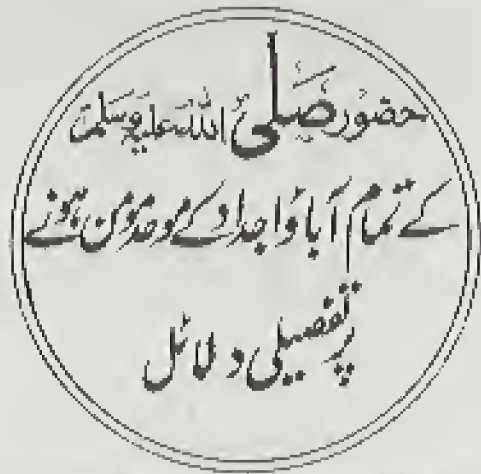 حضور صلی اللہ علیہ وسلم
کے تمام آباؤ اجداد کے موحد مومن ہونے
پر تفصیلی دلائل